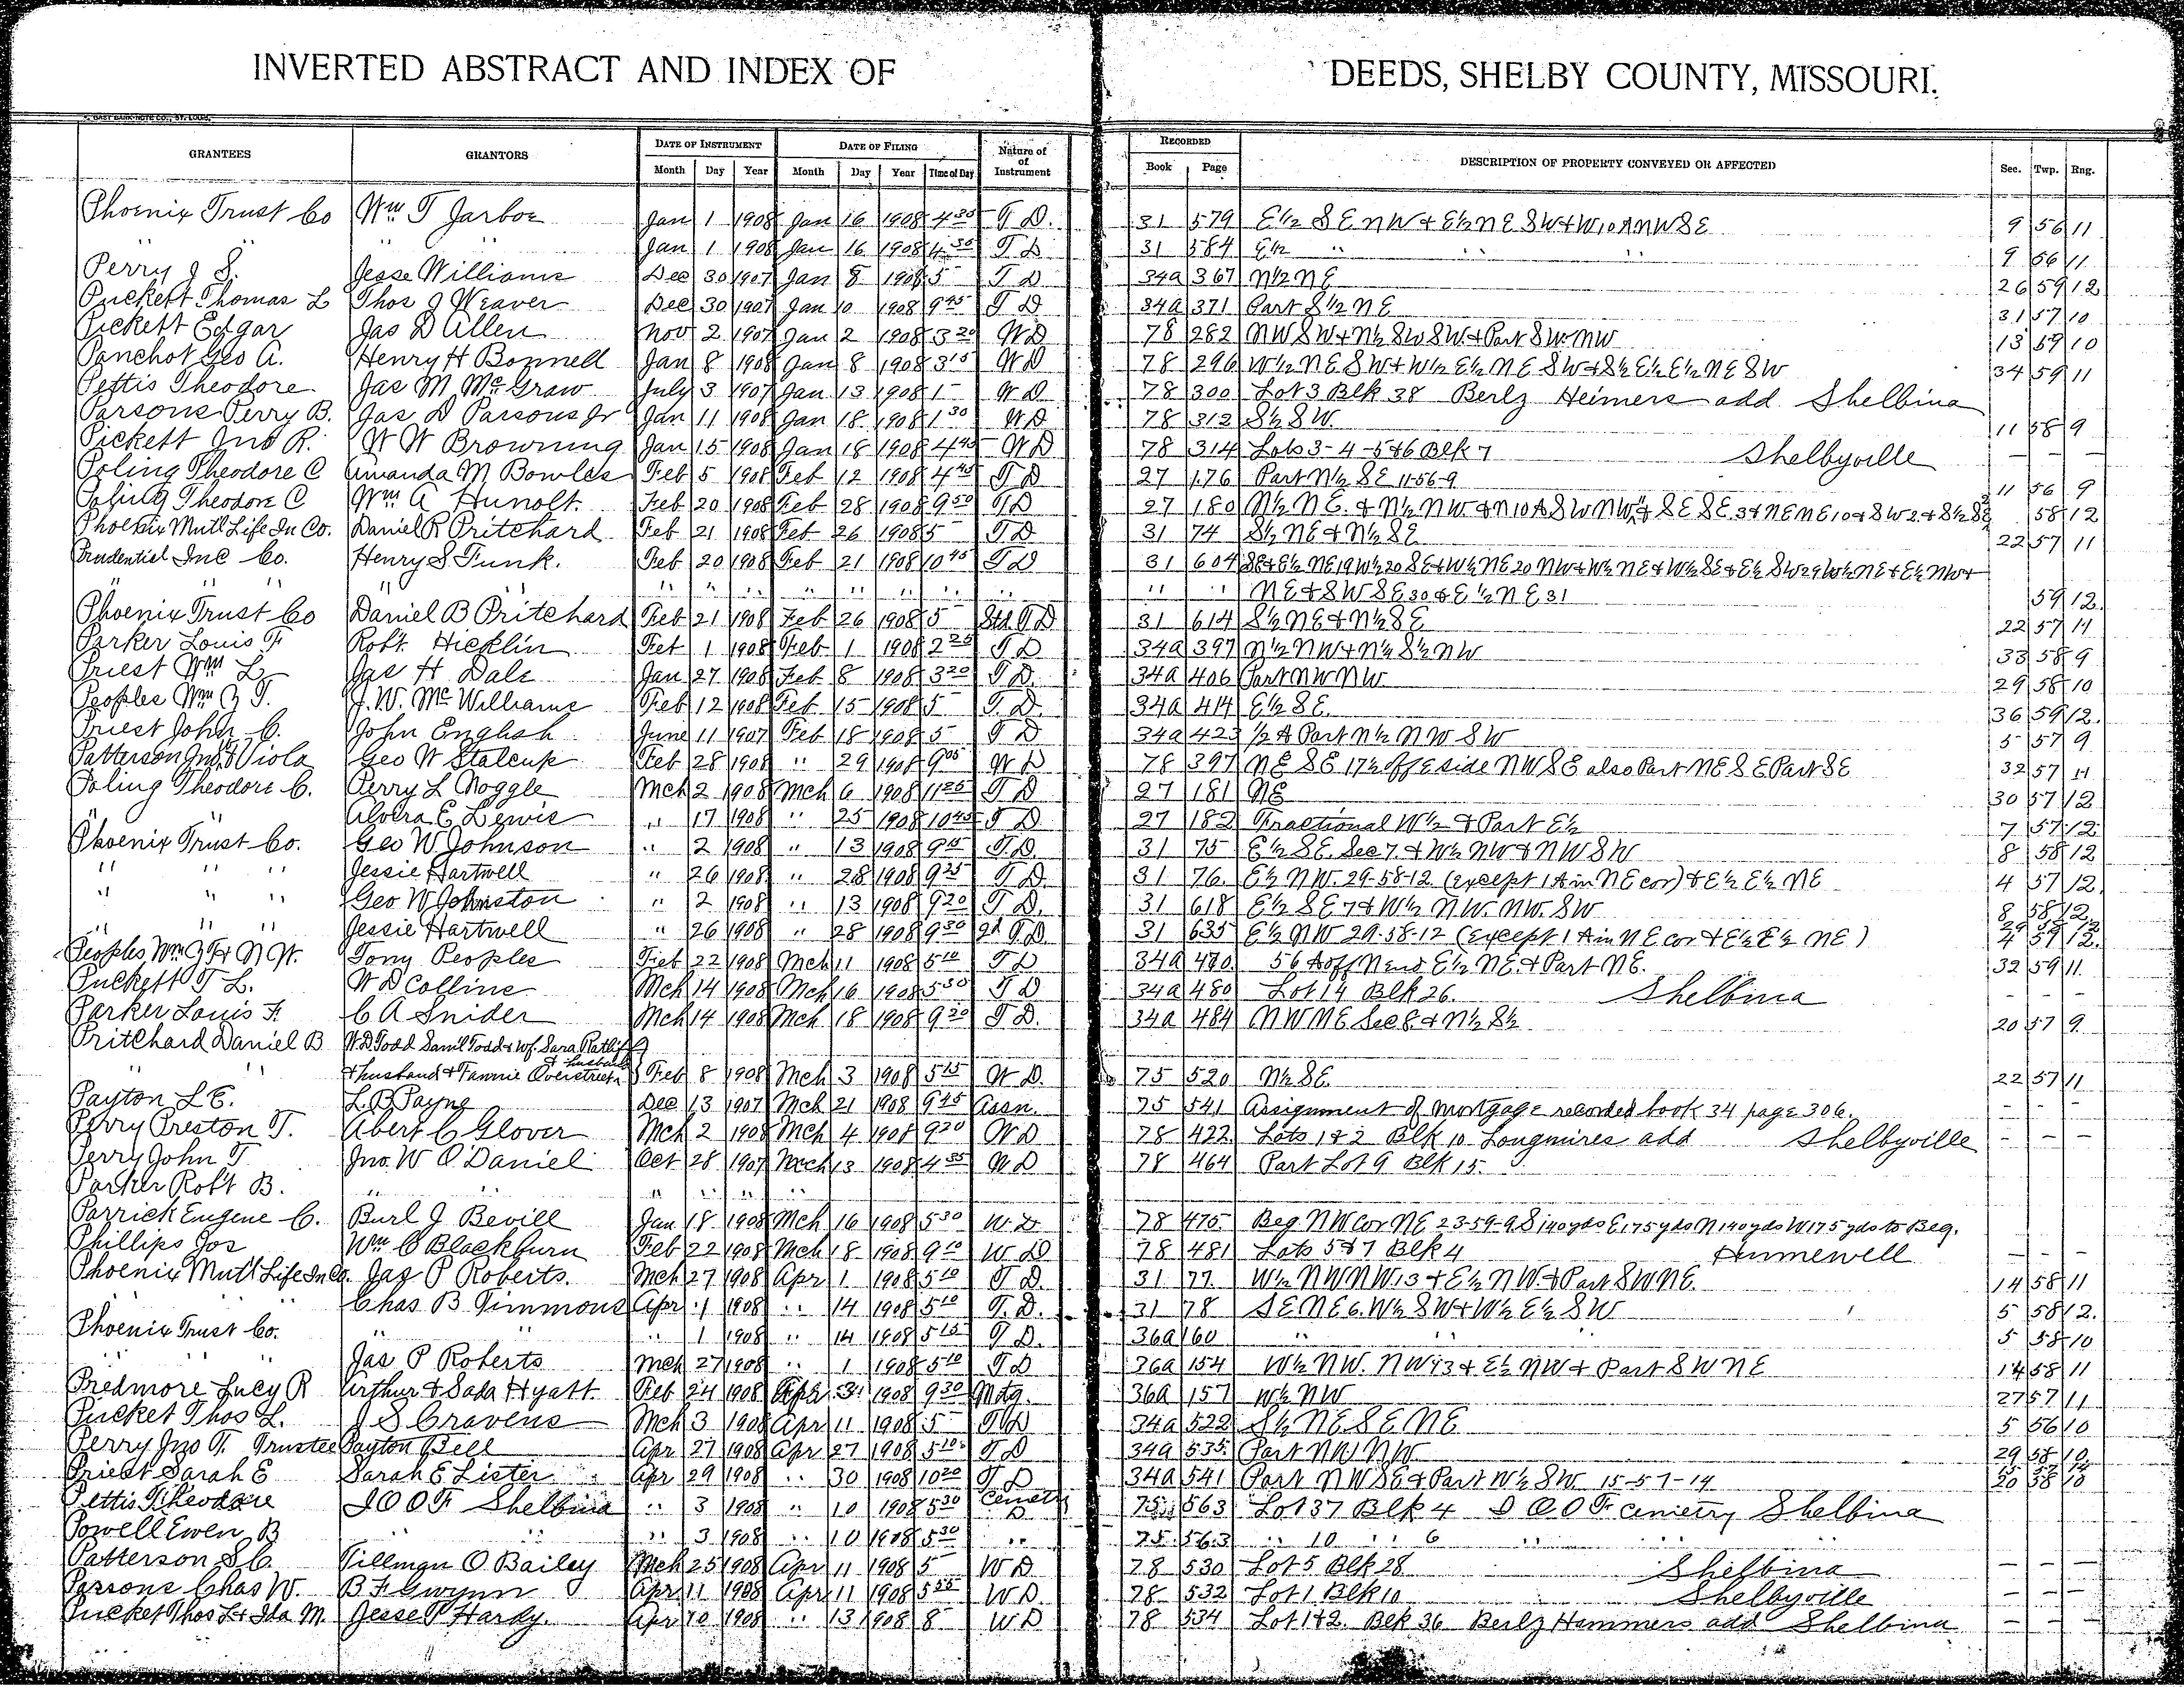 INVERTED ABSTRACT AND INDEX OF DEEDS, SHELBY COUNTY, MISSOURI.
GRANTEES GRANTORS DATE OF INSTRUMENT DATE OF FILING Nature of Instrument RECORDED DESCRIPTION OF PROPERTY CONVEYED OR AFFECTED Sec. Twp. Rng.
Month Day Year Month Day Year Time of Day Book Page
Phoenix Trust Co Wm T Jarboe Jan 1 1908 Jan 16 1908 4 30 T D. 31 579 E½ S E NW + E½ NE SW + W 10 A NW SE 9 56 11
" " " Jan 1 1908 Jan 16 1908 4 30 T D 31 584 E½ " " 9 56 11
Perry J S. Jesse Williams Dec 30 1907 Jan 8 1908 5 T D 34a 367 N½ NE 26 59 12
Puckett Thomas L Thos J Weaver Dec 30 1907 Jan 10 1908 9 45 T D 34a 371 Part S½ NE 31 57 10
Pickett Edgar Jas D Allen Nov 2 1907 Jan 2 1908 3 20 W D 78 282 NW SW + N½ SW SW + Part SW NW 13 59 10
Panchot Geo A. Henry H Bonnell Jan 8 1908 Jan 8 1908 3 15 W D 78 296 W½ NE SW + W½ E½ NE SW + S½ E½ E½ NE SW 34 59 11
Pettis Theodore Jas M McGraw July 3 1907 Jan 13 1908 1 W D 78 300 Lot 3 Blk 38 Berlz Heimers add Shelbina
Parsons Perry B. Jas D Parsons Jr Jan 11 1908 Jan 18 1908 1 30 W D 78 312 S½ SW. 11 58 9
Pickett Jno R. W W Browning Jan 15 1908 Jan 18 1908 4 45 W D 78 314 Lots 3-4-5&6 Blk 7 Shelbyville — —
Poling Theodore C Amanda M Bowles Feb 5 1908 Feb 12 1908 4 45 T D 27 176 Part N½ SE 11-56-9 11 56 9
Poling Theodore C Wm A Hunolt. Feb 20 1908 Feb 28 1908 9 50 T D 27 180 N½ NE. & N½ NW & N 10 A SW NW & SE SE 3 + NE NE 10 & SW 2 & S½ SE 58 12
Phoenix Mutl Life In Co. Daniel R Pritchard Feb 21 1908 Feb 26 1908 5 T D 31 74 S½ NE & N½ SE 22 57 11
Prudential Inc Co. Henry S Funk. Feb 20 1908 Feb 21 1908 10 45 T D 31 604 SE + E½ NE 19 W½ 20 SE + W½ NE 20 NW + W½ NE + W½ SE + E½ SW 29 W½ NE + E½ NW +
" " " " " " " " " " " " " NE & SW SE 30 & E½ NE 31 59 12
Phoenix Trust Co Daniel B Pritchard Feb 21 1908 Feb 26 1908 5 T D 31 614 S½ NE & N½ SE 22 57 11
Parker Louis F Robt. Hicklin Feb 1 1908 Feb 1 1908 2 25 T D 34a 397 N½ NW + N½ S½ NW 33 58 9
Priest Wm L Jas H Dale Jan 27 1908 Feb 8 1908 3 20 T D. 34a 406 Part NW NW. 29 58 10
Peoples Wm G T. J. W. McWilliams Feb 12 1908 Feb 15 1908 5 T. D. 34a 414 E½ SE. 36 59 12.
Priest John C. John English June 11 1907 Feb 18 1908 5 T D 34a 423 ½ A Part N½ NW SW 5 57 9
Patterson Jno. & Viola Geo W Stalcup Feb 28 1908 " 29 1908 9 05 W D 78 397 NE SE 17½ off E side NW SE also Part NE SE Part SE 32 57 11
Poling Theodore C. Perry L Noggle Mch 2 1908 Mch 6 1908 11 25 T D 27 181 NE 30 57 12
" Alvera E Lewis " 17 1908 " 25 1908 10 45 T D 27 182 Fractional W½ & Part E½ 7 57 12
Phoenix Trust Co. Geo W Johnson " 2 1908 " 13 1908 9 15 T. D. 31 75 E½ SE Sec 7. & W½ NW & NW SW 8 58 12
" " " Jessie Hartwell " 26 1908 " 28 1908 9 25 T D. 31 76. E½ NW. 29-58-12 (except 1 A in NE cor) & E½ E½ NE 4 57 12.
" " " Geo W Johnston " 2 1908 " 13 1908 9 20 T D. 31 618 E½ SE 7 & W½ NW. NW. SW 8 58 12
" " " Jessie Hartwell " 26 1908 " 28 1908 9 30 2d T D. 31 635 E½ NW 29-58-12 (Except 1 A in NE cor & E½ E½ NE) 4 57 12.
Peoples, Wm G T & N W. Tony Peoples Feb 22 1908 Mch 11 1908 5 10 T D 34a 470 56 A off N end E½ NE. & Part NE. 32 59 11
Puckett T L. W D Collins Mch 14 1908 Mch 16 1908 5 30 T D 34a 480 Lot 14 Blk 26. Shelbina - - -
Parker Louis F. C A Snider Mch 14 1908 Mch 18 1908 9 20 T D. 34a 484 NW NE Sec 8 & N½ S½ 20 57 9
Pritchard Daniel B W. D Todd Saml Todd & wf. Sara Ratliff & husband
" " & husband & Fannie Overstreet Feb 8 1908 Mch 3 1908 5 15 W D. 75 520 N½ SE. 22 57 11
Payton L E. L. B Payne Dec 13 1907 Mch 21 1908 9 45 Assn. 75 541 Assignment of Mortgage recorded book 34 page 306. - - -
Perry Preston T. Abert C Glover Mch 2 1908 Mch 4 1908 9 20 W D 78 422 Lots 1 & 2 Blk 10 Longmires add Shelbyville - - -
Perry John T Jno. W O'Daniel Oct 28 1907 Mch 13 1908 4 35 W D 78 464 Part Lot 9 Blk 15.
Parker Robt B. " " " " "
Parrick Eugene C. Burl J Bevill Jan 18 1908 Mch 16 1908 5 30 W. D 78 475 Beg NW cor NE 23-59-9 S 140 yds E 175 yds N 140 yds W 175 yds to Beg.
Phillips Jos Wm C Blackburn Feb 22 1908 Mch 18 1908 9 10 W D 78 481 Lots 5 & 7 Blk 4 Hunnewell - - -
Phoenix Mutl Life In Co. Jas P Roberts. Mch 27 1908 Apr 1 1908 5 10 T D. 31 77 W½ NW NW 13 & E½ NW & Part SW NE. 14 58 11
" " " Chas B Timmons Apr 1 1908 " 14 1908 5 10 T. D. 31 78 SE NE 6. W½ SW + W½ E½ SW 5 58 12.
Phoenix Trust Co. " " 1 1908 " 14 1908 5 15 T D. 36a 160 " " " 5 58 10
" " " Jas P Roberts Mch 27 1908 " 1 1908 5 10 T D 36a 154 W½ NW. NW 13 & E½ NW & Part SW NE 14 58 11
Predmore Lucy R Arthur & Sada Hyatt Feb 24 1908 Apr 3 1908 9 30 Motg. 36a 157 W½ NW 27 57 11
Pucket Thos L. J S Cravens Mch 3 1908 Apr 11 1908 5 T D 34a 522 S½ NE SE NE 5 56 10
Perry Jno T. Trustee Payton Bell Apr 27 1908 Apr 27 1908 5 10 T D 34a 535 Part NW NW 29 58 10
Priest Sarah E Sarah E Lister Apr 29 1908 " 30 1908 10 20 T D 34a 541 Part NW SE & Part W½ SW 15-57-14 20 58 10
Pettis Theodore I O O F Shelbina " 3 1908 " 10 1908 5 30 Cemety D 75 563 Lot 37 Blk 4 I O O F Cemetry Shelbina
Powell Ewen B " " " 3 1908 " 10 1908 5 30 " 75 563 " 10 " 6 " "
Patterson S C. Tillman O Bailey Mch 25 1908 Apr 11 1908 5 W D 78 530 Lot 5 Blk 28 Shelbina — — —
Parsons Chas W. B F Gwynn Apr 11 1908 Apr 11 1908 5 25 W D 78 532 Lot 1 Blk 10 Shelbyville — — —
Pucket Thos L & Ida M. Jesse P Hardy. Apr 10 1908 " 13 1908 8 W D 78 534 Lot 1 & 2. Blk 36 Berlz Hemmers add Shelbina — — —